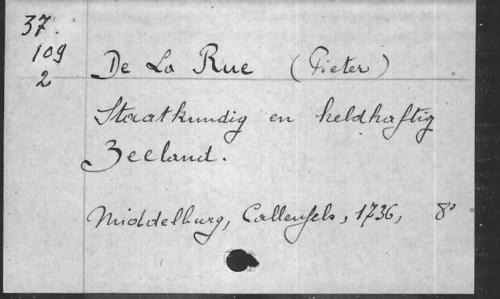 37.
109
2
De La Rue (Pieter)
Staatkundig en heldhaftig
Zeeland.
Middelburg, Callenfels, 1736, 8°